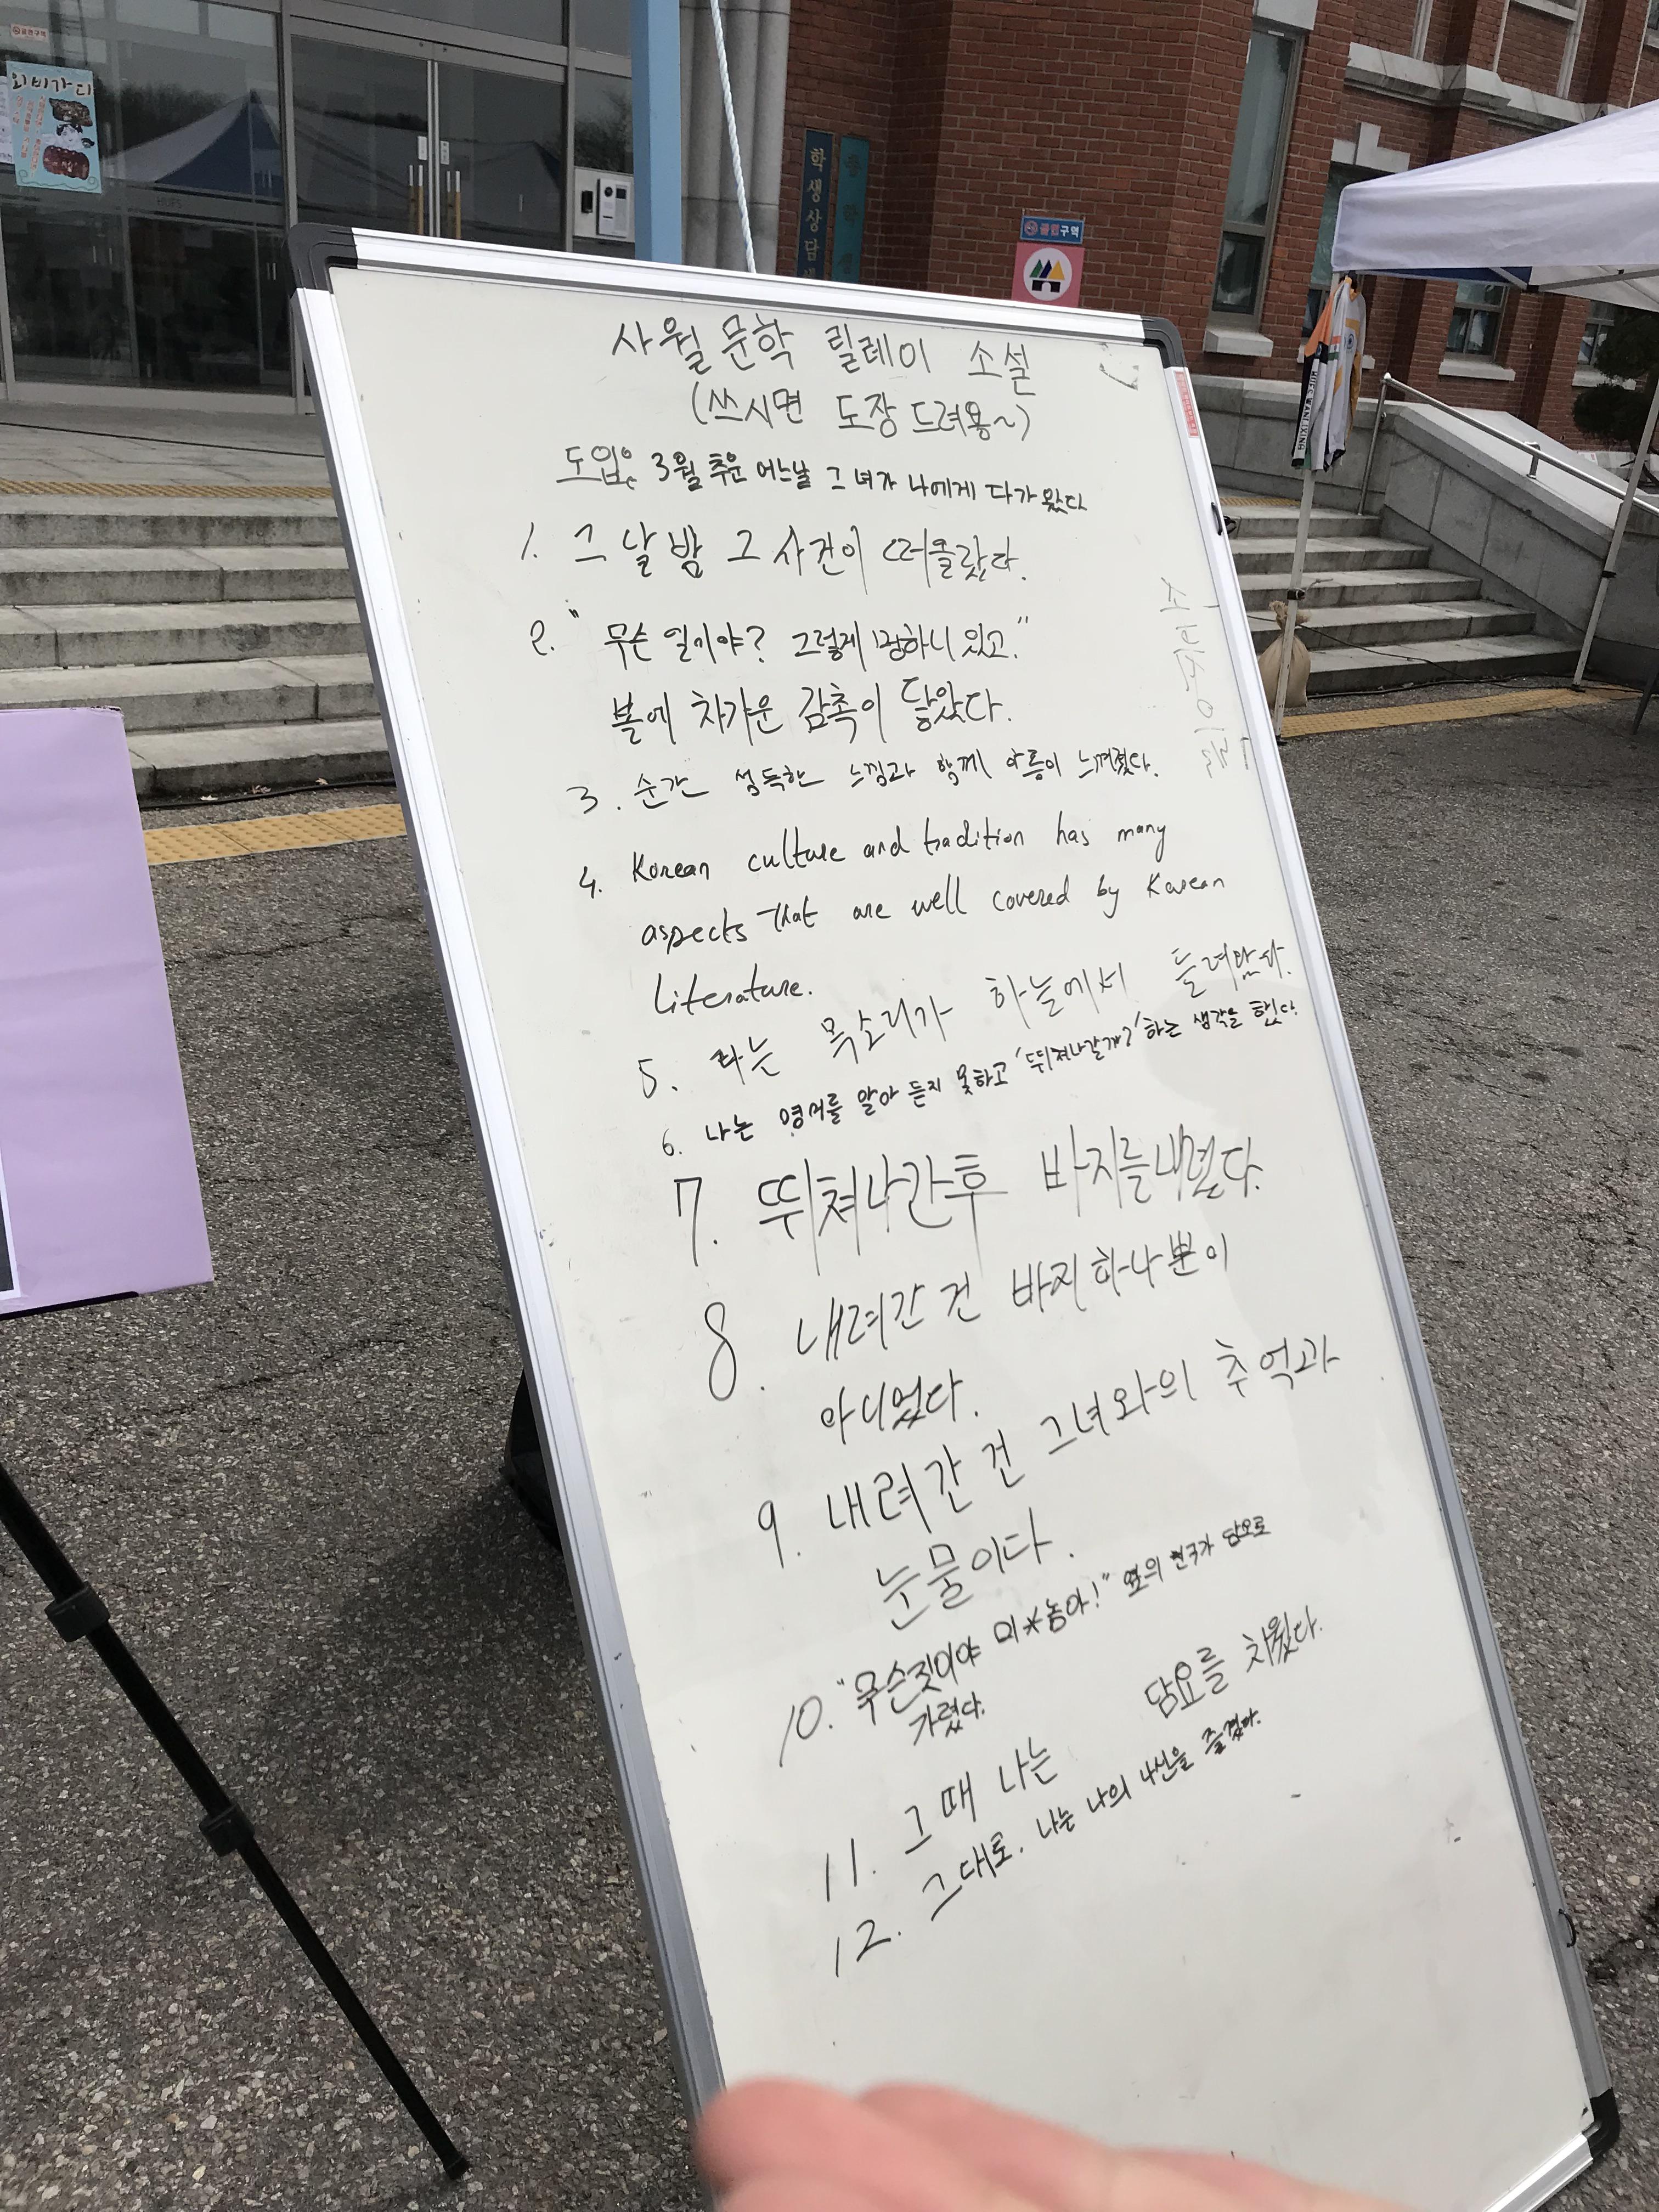 외비가티
학생상담센
금연구역
HUFS
사월문학 릴레이 소설
(쓰시면 도장 드려용~)
도입은 3월 추운 어느날 그녀가 나에게 다가왔다
1. 그날 밤 그 사건이 떠올랐다.
2. "무슨 일이야? 그렇게 멍하니 있고."
볼에 차가운 감촉이 닿았다.
3. 순간 섬득한 느낌과 함께 소름이 느껴졌다.
4. Korean culture and tradition has many
aspects that are well covered by Korean
literature.
5. 라는 목소리가 하늘에서 들려왔다.
6. 나는 영어를 알아 듣지 못하고 '뛰쳐나갈까?' 하는 생각을 했다.
7. 뛰쳐나간 후 바지를 내렸다.
8. 내려간 건 바지 하나뿐이
아니었다.
9. 내려간 건 그녀와의 추억과
눈물이다.
10. "무슨짓이야 미*놈아!" 옆의 친구가 담요로
가렸다.
11. 그때 나는 담요를 치웠다.
12. 그대로. 나는 나의 나신을 즐겼다.